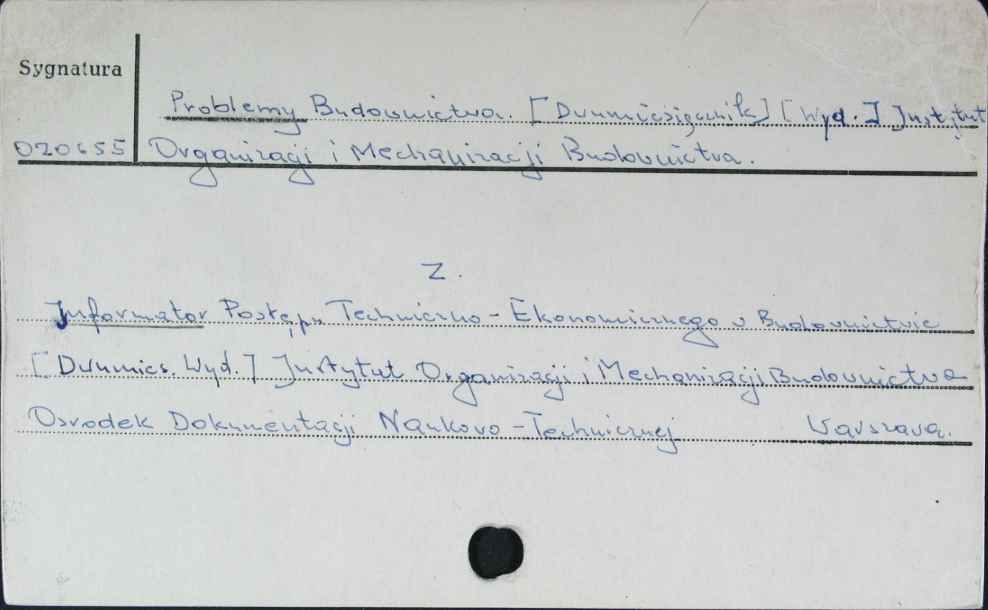 Sygnatura
Problemy Budownictwa. [Dwumiesięcznik] [Wyd.] Instytut
020655 Organizacji i Mechanizacji Budownictwa.
Z.
Informator Postępu Techniczno - Ekonomicznego w Budownictwie
[Dwumies. Wyd.] Instytut Organizacji i Mechanizacji Budownictwa
Osrodek Dokumentacji Naukowo - Technicznej Warszawa.